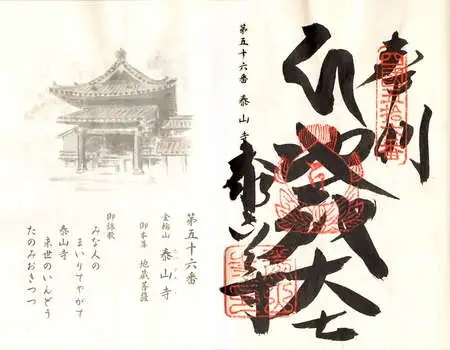 奉納
四國五拾六番
第五十六番 泰山寺
泰山寺
第五十六番
金輪山 泰山寺
御本尊 地蔵菩薩
御詠歌
みな人の
まいりてやがて
泰山寺
来世のいんどう
たのみおきつつ